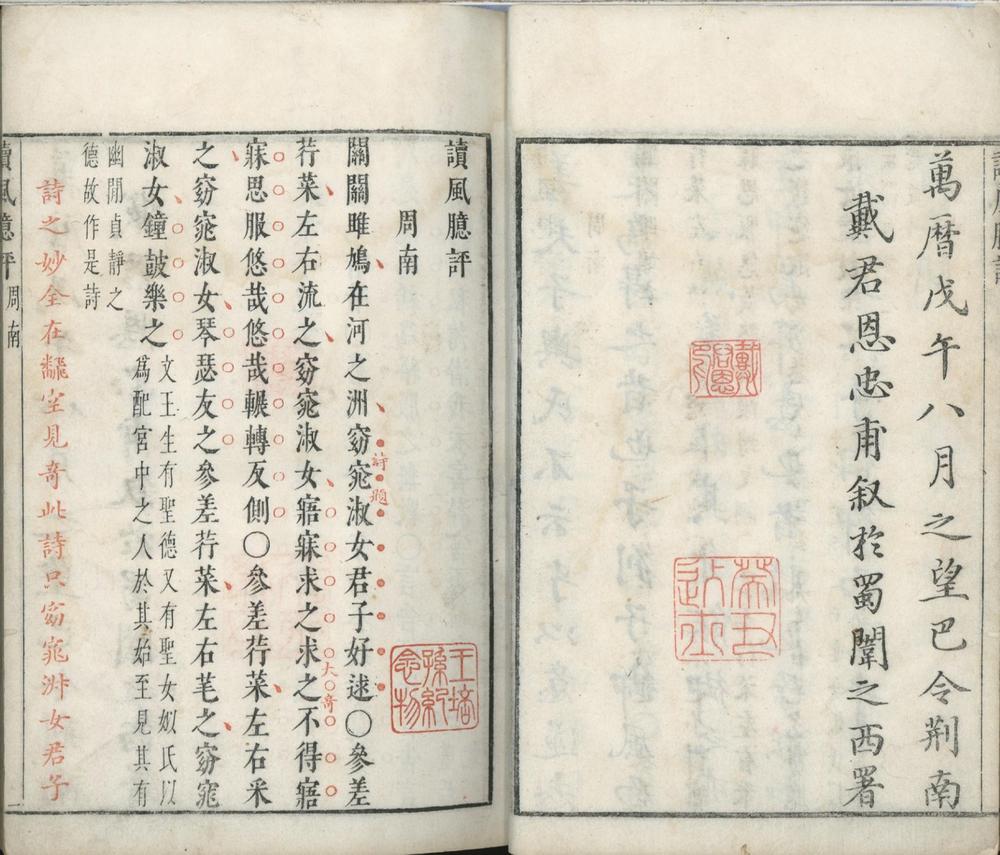 萬曆戊午八月之望巴令荆南
戴君恩忠甫叙於蜀闈之西署
戴君恩印
讀風臆評
周南
關關雎鳩在河之洲窈窕淑女君子好逑〇參差
詩題
荇菜左右流之窈窕淑女寤寐求之求之不得寤
大奇
寐思服悠哉悠哉輾轉反側〇參差荇菜左右采
之窈窕淑女琴瑟友之參差荇菜左右芼之窈窕
淑女鐘鼓樂之
文王生有聖德又有聖女姒氏以
爲配宮中之人於其始至見其有
幽閒貞靜之
德故作是詩
詩之妙全在翻空見奇此詩只窈窕淑女君子
讀風臆評 周南 一
王培孫紀念物